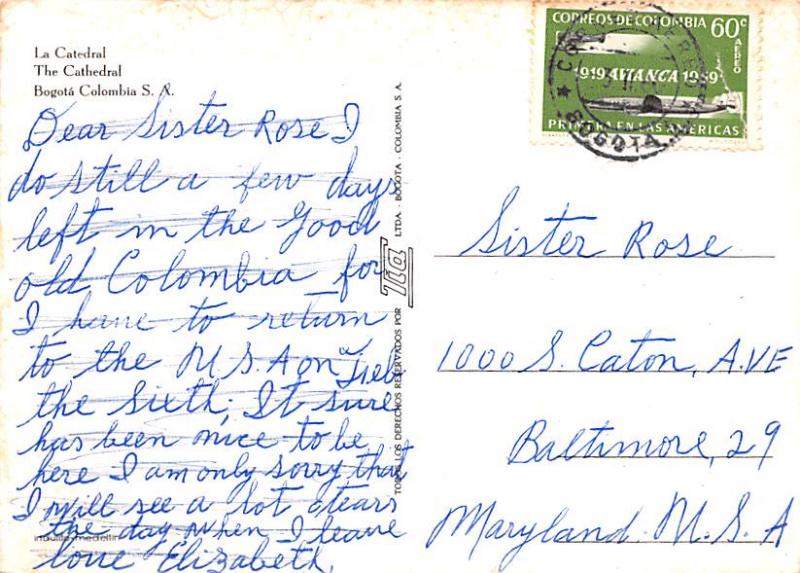 La Catedral
The Cathedral
Bogotá Colombia S. A.
Dear Sister Rose I
do still a few days
left in the Good
old Colombia for
I have to return
to the U S A on Feb
the sixth; It sure
has been nice to be
here I am only sorry that
I will see a lot tears
the day when I leave
love Elizabeth.
TODOS LOS DERECHOS RESERVADOS POR
LTDA. - BOGOTA - COLOMBIA S A.
CORREOS DE COLOMBIA 60c
AEREO
1919 AVIANCA 1959
PRIMERA EN LAS AMERICAS
BOGOTA
Sister Rose
1000 S. Caton, AVE
Baltimore, 29
Maryland. U. S. A